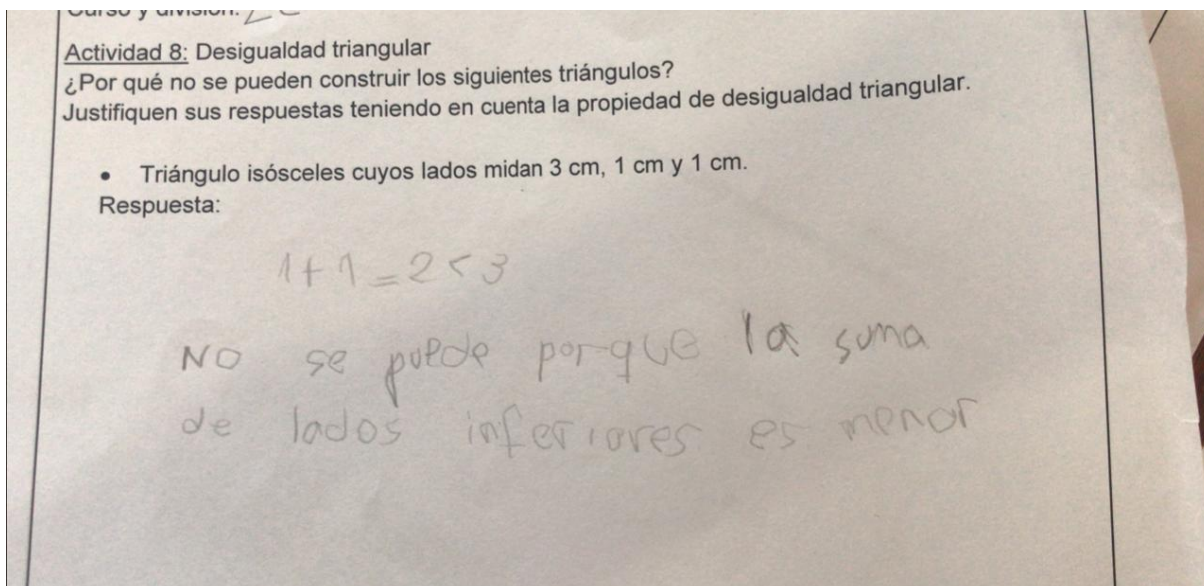 Curso y división:
Actividad 8: Desigualdad triangular
¿Por qué no se pueden construir los siguientes triángulos?
Justifiquen sus respuestas teniendo en cuenta la propiedad de desigualdad triangular.
• Triángulo isósceles cuyos lados midan 3 cm, 1 cm y 1 cm.
Respuesta:
1+1=2<3
NO se puede porque la suma
de lados inferiores es menor